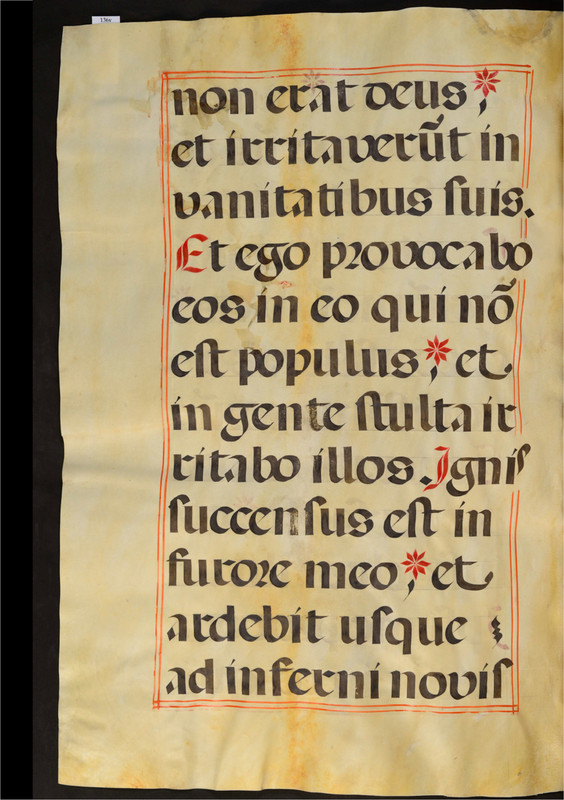 non erat deus;
et irritauerũt in
vanitatibus ſuis.
Et ego prouocabo
eos in eo qui nõ
eſt populus; et
in gente ſtulta ir
ritabo illos. Igniſ
ſuccenſus eſt in
furore meo; et
ardebit uſque
ad inferni nouiſ